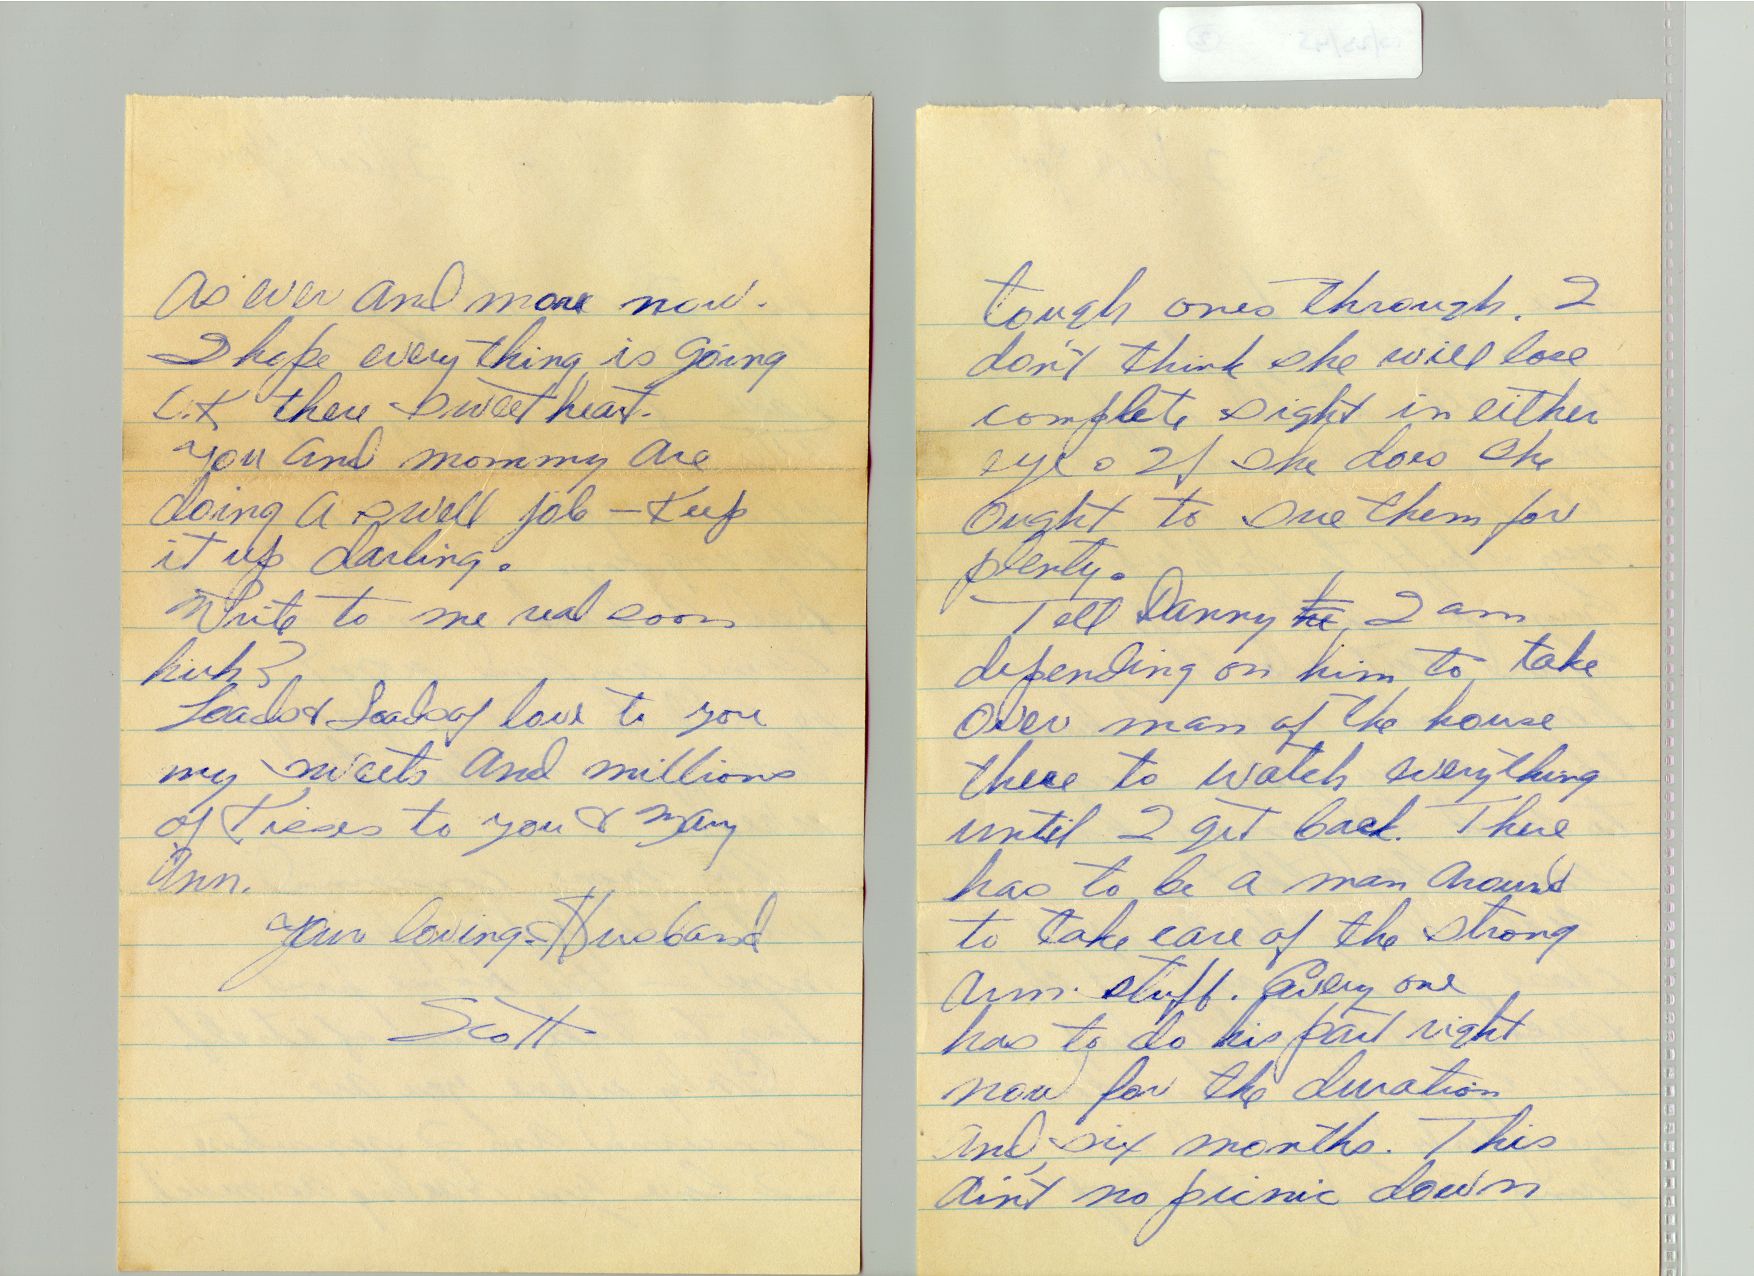 as ever and more now.
I hope everything is going
O.K there sweetheart.
You and mommy are
doing a swell job – Keep
it up darling.
Write to me real soon
huh?
Loads & Loads of love to you
my sweets and millions
of Kisses to you & Mary
Ann.
Your loving Husband
Scott
tough ones through. I
don't think she will lose
complete sight in either
eye. If she does she
ought to sue them for
plenty.
Tell Danny he, I am
depending on him to take
over man of the house
there to watch everything
until I get back. There
has to be a man around
to take care of the strong
arm stuff. Every one
has to do his part right
now for the duration
and six months. This
ain't no picnic down